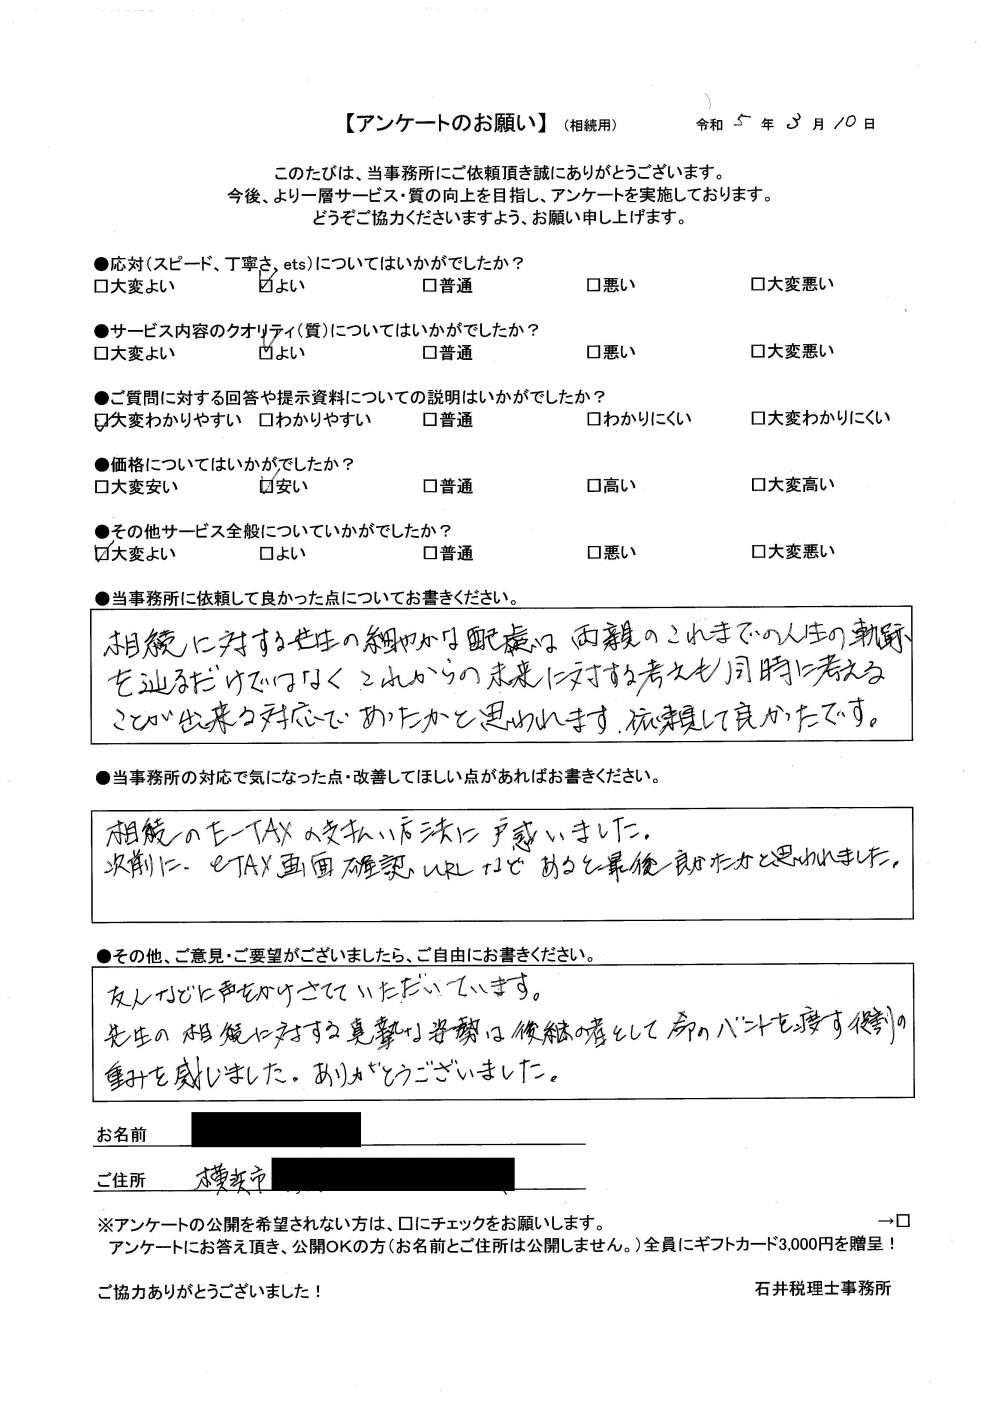 【アンケートのお願い】(相続用) 令和 5 年 3 月 10 日
このたびは、当事務所にご依頼頂き誠にありがとうございます。
今後、より一層サービス・質の向上を目指し、アンケートを実施しております。
どうぞご協力くださいますよう、お願い申し上げます。
●応対(スピード、丁寧さ、ets)についてはいかがでしたか?
□大変よい ☑よい □普通 □悪い □大変悪い
●サービス内容のクオリティ(質)についてはいかがでしたか?
□大変よい ☑よい □普通 □悪い □大変悪い
●ご質問に対する回答や提示資料についての説明はいかがでしたか?
☑大変わかりやすい □わかりやすい □普通 □わかりにくい □大変わかりにくい
●価格についてはいかがでしたか?
□大変安い ☑安い □普通 □高い □大変高い
●その他サービス全般についていかがでしたか?
☑大変よい □よい □普通 □悪い □大変悪い
●当事務所に依頼して良かった点についてお書きください。
相続に対する先生の細やかな配慮は両親のこれまでの人生の軌跡
を辿るだけではなくこれからの未来に対する考えも同時に考える
ことが出来る対応であったかと思われます。依頼して良かったです。
●当事務所の対応で気になった点・改善してほしい点があればお書きください。
相続のE-TAXの支払い方法に戸惑いました。
eTAX画面確認URLなどあると最後良かったかと思われました。
●その他、ご意見・ご要望がございましたら、ご自由にお書きください。
友人などに声をかけさせていただいています。
先生の相続に対する真摯な姿勢は後継の者として命のバントを渡す役割の
重みを感じました。ありがとうございました。
お名前
ご住所 横浜市
※アンケートの公開を希望されない方は、□にチェックをお願いします。 →□
アンケートにお答え頂き、公開OKの方(お名前とご住所は公開しません。)全員にギフトカード3,000円を贈呈!
ご協力ありがとうございました! 石井税理士事務所